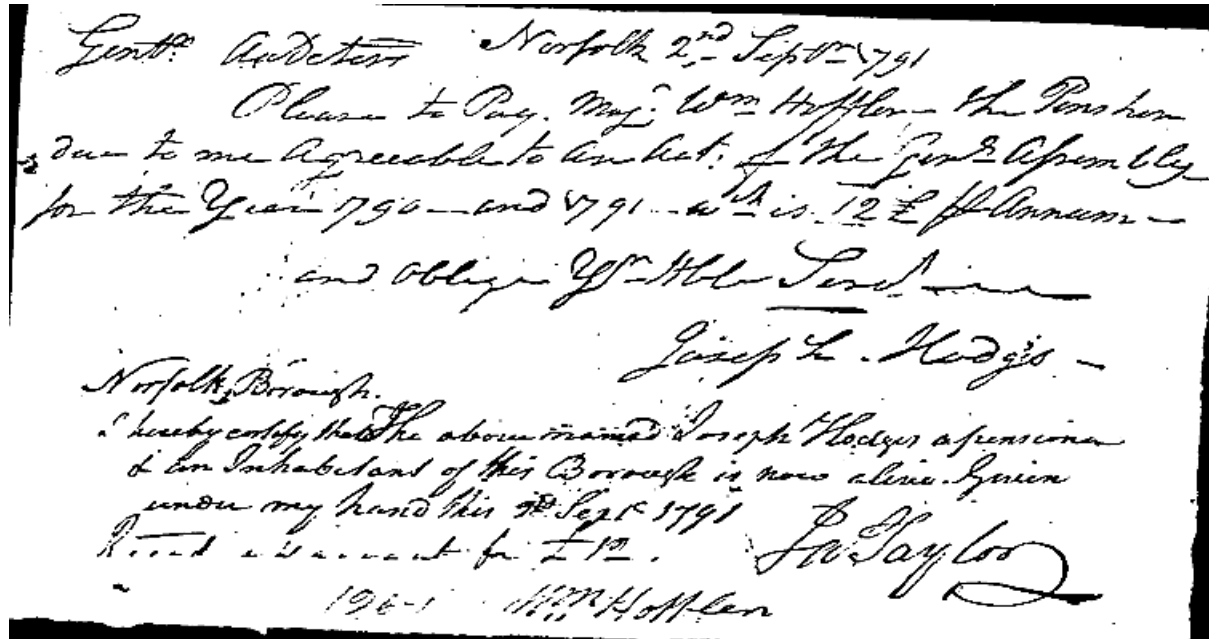 Gentn. Auditors Norfolk 2nd Septr. 1791
Please to Pay Majr. Wm Hoffler the Penshon
due to me Agreeable to an Act of the Genl. Assembly
for the Year 1790 and 1791 wch is 12 £ pr Annum
and oblige Yr Hble Servt.
Joseph Hodges
Norfolk Borough.
I hereby certify that The above named Joseph Hodges a pensioner
& an Inhabitant of this Borough is now alive. Given
under my hand this 2d Septr. 1791
a warrant for £12.
Jn Taylor
Wm Hoffler